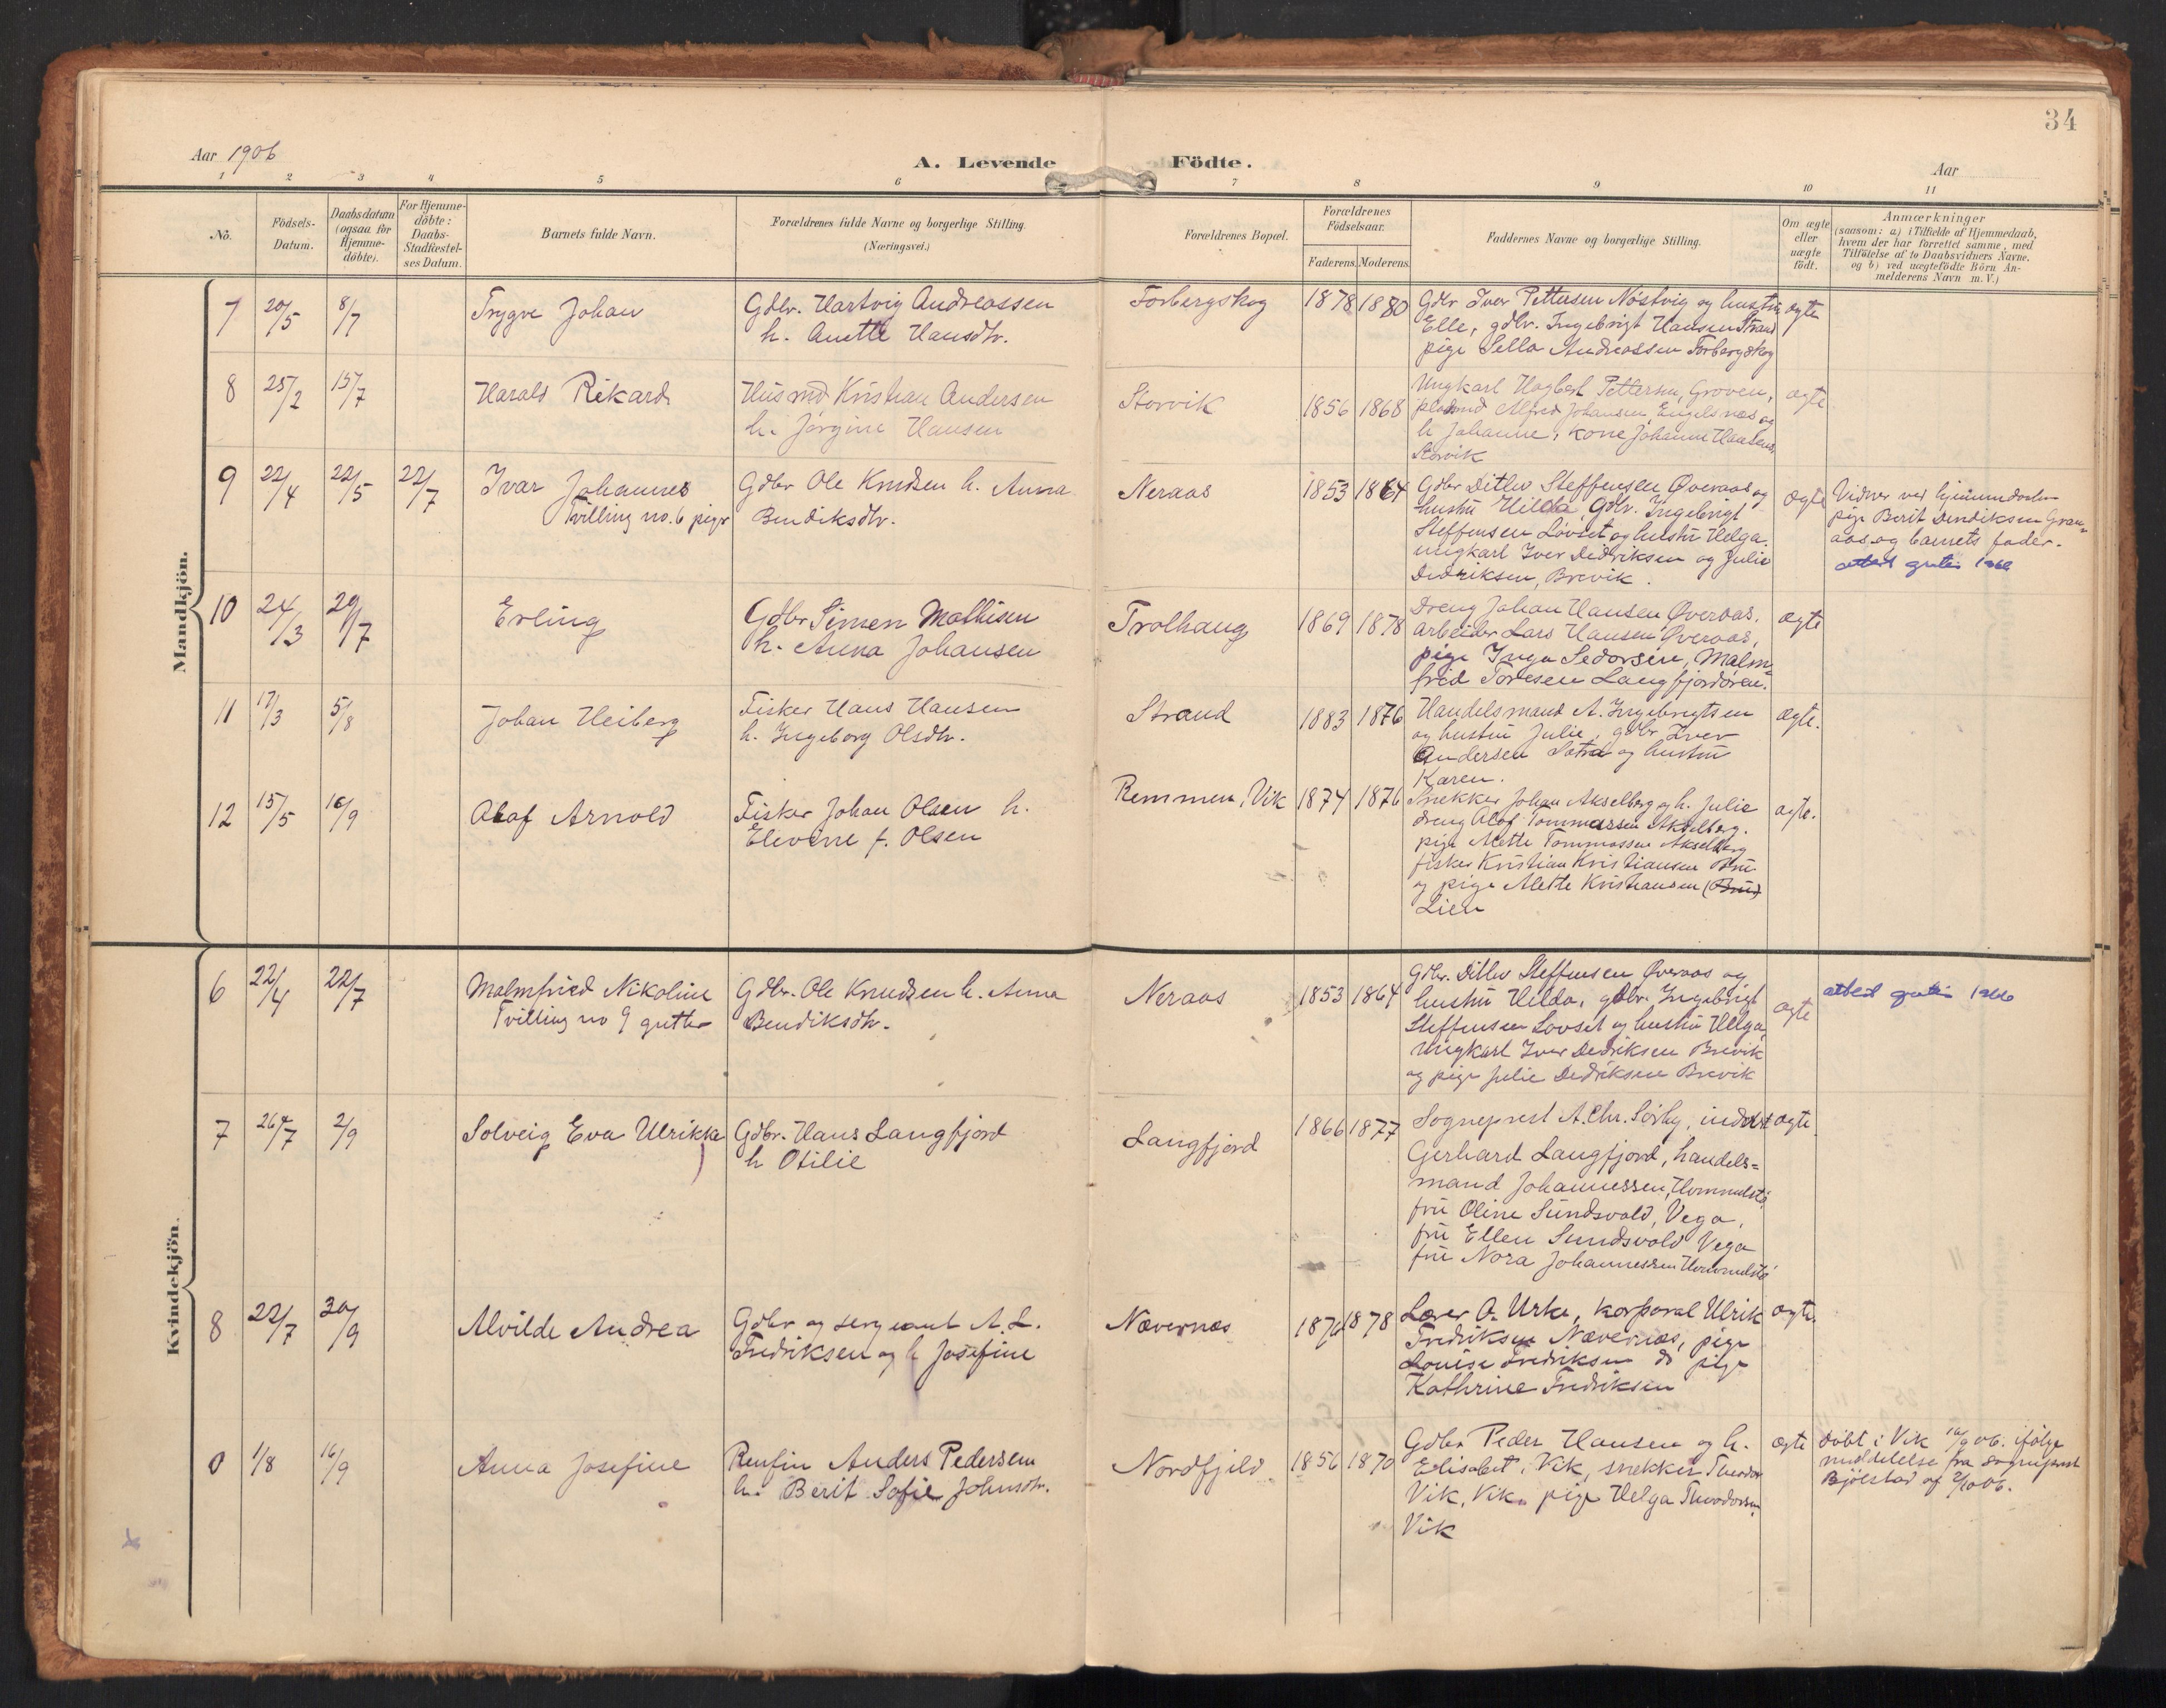 34
Aar 1906
A. Levende Födte.
Aar
1 2 3 4 5 6 7 8 9 10 11
No.
Födsels-Datum.
Daabsdatum (ogsaa for Hjemme-döbte).
For Hjemme-döbte: Daabs-Stadfæstel-ses Datum.
Barnets fulde Navn.
Forældrenes fulde Navne og borgerlige Stilling. (Næringsvei.)
Forældrenes Bopæl.
Forældrenes Födselsaar.
Faderens. Moderens.
Faddernes Navne og borgerlige Stilling.
Om ægte eller uægte födt.
Anmærkninger
(saasom: a) i Tilfælde af Hjemmedaab,
hvem der har forrettet samme, med
Tilföielse af to Daabsvidners Navne.
og b) ved uægtefödte Börn An-
melderens Navn m. V.)
Mandkjön.
7 20/5 8/7 Trygve Johan
Gdbr. Hartvig Andreassen
h. Anette Hansdtr.
Forbergskog 1878 1880
Gdbr Iver Pettersen Nöstvig og hustru
Elle, gdbr. Ingebrigt Hansen Strand
pige Sella Andreassen Forbergskog
ægte
8 25/2 15/7 Harald Rikard
Husmd Kristian Andersen
h. Jørgine Hansen
Storvik 1856 1868
Ungkarl Hagbart Pettersen, Groven,
pladsmd Alfred Johansen, Engelsnæs og
h Johanne, kone Johanne Hansen
Storvik
ægte
9 22/4 22/5 22/7 Ivar Johannes
Tvilling no. 6 piger
Gdbr Ole Knudsen h. Anna
Bendiksdtr.
Neraas 1853 1864
Gdbr Ditlev Steffensen Øveraas og
hustru Hilda, Gdbr. Ingebrigt
Steffensen Lövset og hustru Helga.
ungkarl Iver Dedriksen og Julie
Dedriksen, Brevik.
ægte
Vidner ved hjemmedaaben
pige Berit Bendiksen Gran-
aas og barnets fader.
attest gratis 1966
10 24/3 29/7 Erling
Gdbr Simen Mathisen
h. Anna Johansen
Trolhaug 1869 1878
Dreng Johan Hansen Øveraas,
arbeider Lars Hansen Øveraas,
pige Inga Sedorsen, Malm-
frid Toresen Langfjordören.
ægte
11 17/3 5/8 Johan Heiberg
Fisker Hans Hansen
h. Ingeborg Olsdtr.
Strand 1883 1876
Handelsmand A. Ingebrigtsen
og hustru Julie, gdbr Iver
Andersen Sætra og hustru
Karen.
ægte.
12 15/5 16/9 Olaf Arnold
Fisker Johan Olsen h.
Elevine f. Olsen
Remmen, Vik 1874 1876
Snekker Johan Akselberg og h. Julie
dreng Olaf Tommassen Akselberg.
pige Mette Tommassen Akselberg
fisker Kristian Kristiansen Bru
og pige Alette Kristiansen (Bru)
Lien
ægte.
Kvindekjön.
6 22/4 22/7 Malmfried Nikoline
Tvilling no 9 gutter
Gdbr. Ole Knudsen h. Anna
Bendiksdtr.
Neraas 1853 1864
Gdbr. Ditlev Steffensen Øveraas og
hustru Hilda, gdbr. Ingebrigt
Steffensen Lovset og hustru Helga,
Ungkarl Iver Dedriksen Brevik
og pige Julie Dedriksen Brevik
ægte
attest gratis 1966
7 26/7 2/9 Solveig Eva Ulrikke
Gdbr. Hans Langfjord
h Otilie
Langfjord 1866 1877
Sogneprest A. Chr. Sörby, inderst
Gerhard Langfjord, handels=
mand Johannessen, Hommelstö
fru Oline Sundsvold, Vega,
fru Ellen Sundsvold Vega
fru Nora Johannessen Hommelstö
ægte.
8 22/7 30/9 Alvilde Andrea
Gdbr og sergeant A. L.
Fredriksen og h Josefine
Nævernæs 1876 1878
Lærer O. Urke, korporal Ulrik
Fredriksen Nævernæs, pige
Louise Fredriksen do pige
Kathrine Fredriksen
ægte.
9 1/8 16/9 Anna Josefine
Renfin Anders Pedersen
h. Berit Sofie Johnsdtr.
Nordfjeld 1856 1870
Gdbr Peder Hansen og h.
Elisabet, Vik, snekker Theodor
Vik, Vik. pige Helga Theodorsen,
Vik
ægte
döbt i Vik 16/9 06. ifölge
meddelelse fra sogneprest
Bjölstad af 2/10 06.